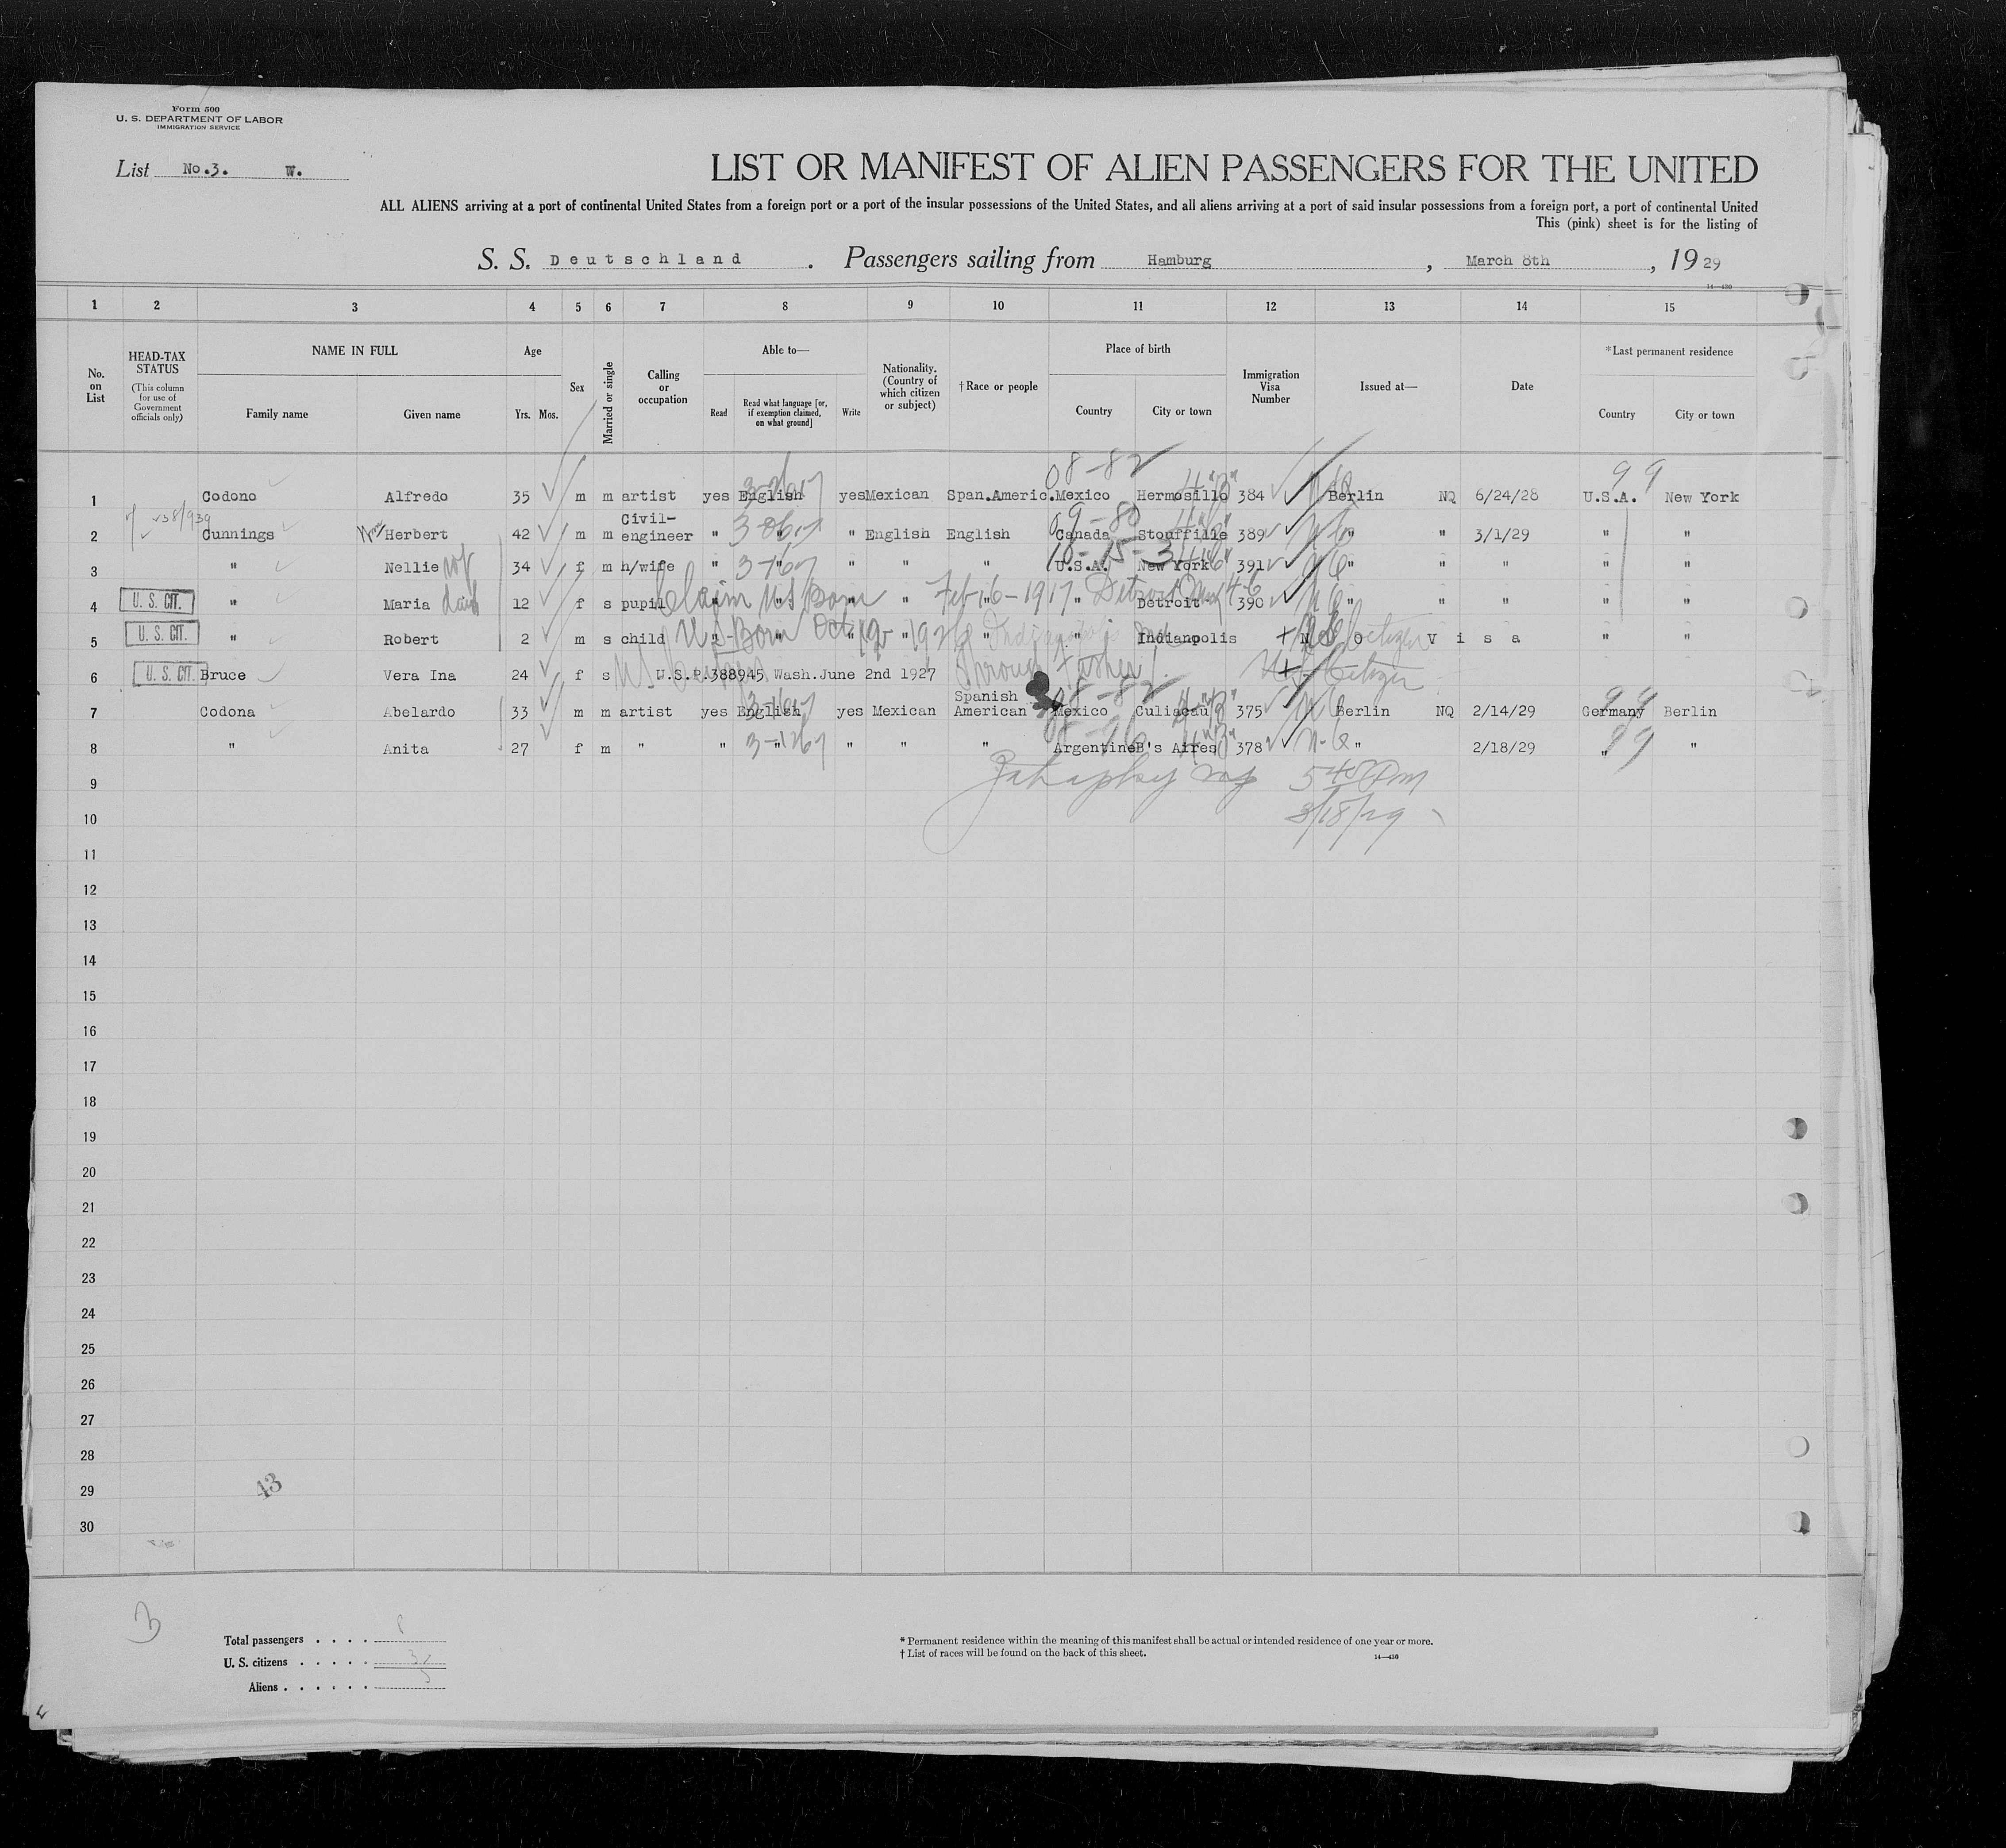 Form 500
U. S. DEPARTMENT OF LABOR
IMMIGRATION SERVICE
List No.3. W.
LIST OR MANIFEST OF ALIEN PASSENGERS FOR THE UNITED
ALL ALIENS arriving at a port of continental United States from a foreign port or a port of the insular possessions of the United States, and all aliens arriving at a port of said insular possessions from a foreign port, a port of continental United
This (pink) sheet is for the listing of
S. S. Deutschland . Passengers sailing from Hamburg , March 8th , 19 29
14—430
1 2 3 4 5 6 7 8 9 10 11 12 13 14 15
No. on List
HEAD-TAX STATUS (This column for use of Government officials only)
NAME IN FULL
Family name Given name
Age
Yrs. Mos.
Sex
Married or single
Calling or occupation
Able to—
Read Read what language [or, if exemption claimed, on what ground] Write
Nationality. (Country of which citizen or subject)
† Race or people
Place of birth
Country City or town
Immigration Visa Number
Issued at—
Date
*Last permanent residence
Country City or town
08-82 99
1 Codono Alfredo 35 m m artist yes English yes Mexican Span.Americ. Mexico Hermosillo 384 Berlin NQ 6/24/28 U.S.A. New York
09-80
2 Cunnings Herbert 42 m m Civil-engineer " 3-067 " English English Canada Stouffille 389 " " 3/1/29 " "
3 " Nellie wf 34 f m h/wife " 3-167 " " " U.S.A. New York 391 " " " " "
4 U. S. CIT. " Maria 12 f s pupil Claim US Born " " Feb 6-1917 " Detroit 390 " " " " "
5 U. S. CIT. " Robert 2 m s child US Born Oct 12 1926 " " " Indianpolis No Visa " "
6 U. S. CIT. Bruce Vera Ina 24 f s U.S.P.388945, Wash.June 2nd 1927 through father US Citizen
08-82 99
7 Codona Abelardo 33 m m artist yes English yes Mexican Spanish American Mexico Culiacau 375 Berlin NQ 2/14/29 Germany Berlin
8 " Anita 27 f m " " " " " " Argentine B's Aires 378 " 2/18/29 " "
9 5 40 PM
10 3/18/29
11
12
13
14
15
16
17
18
19
20
21
22
23
24
25
26
27
28
29 43
30
Total passengers . . . . 8
U. S. citizens . . . . . 3
Aliens . . . . . . 5
* Permanent residence within the meaning of this manifest shall be actual or intended residence of one year or more.
† List of races will be found on the back of this sheet.
14—430